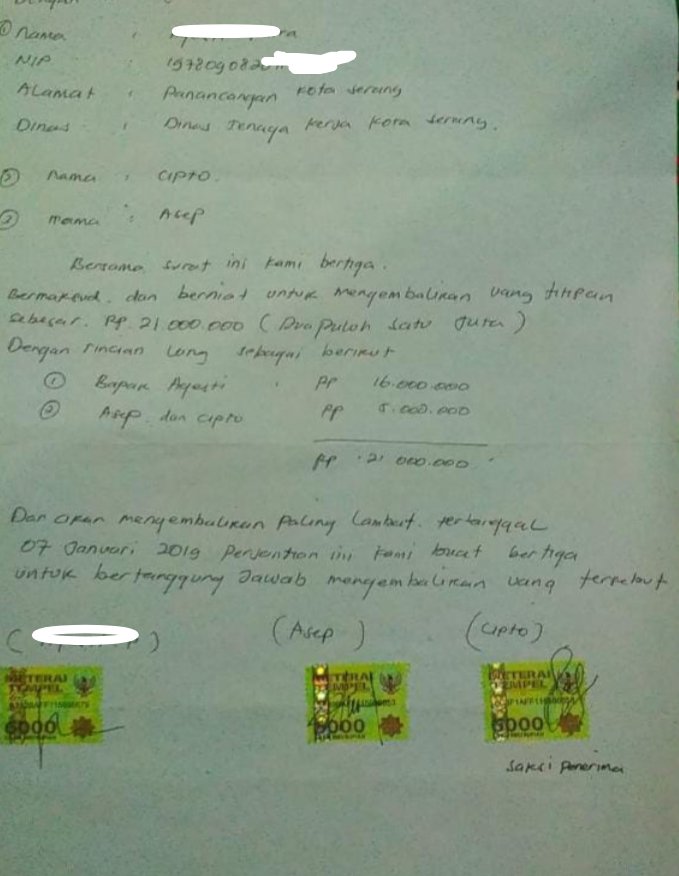 Dengan
① Nama : ra
NIP : 19780908201
Alamat : Panancangan Kota Serang
Dinas : Dinas Tenaga Kerja Kota Serang.
② Nama : Cipto.
③ Nama : Asep
Bersama surat ini kami bertiga.
Bermaksud. dan berniat untuk mengembalikan uang titipan
sebesar. Rp. 21.000.000 (Dua Puluh Satu Juta)
Dengan rincian uang sebagai berikut
① Bapak : Rp 16.000.000
② Asep dan Cipto Rp 5.000.000
Rp . 21 000.000
Dan akan mengembalikan Paling Lambat. tertanggal
07 Januari 2019 Perjanjian ini kami buat bertiga
untuk bertanggung Jawab mengembalikan uang tersebut
( ) (Asep) (Cipto)
METERAI TEMPEL METERAI TEMPEL METERAI TEMPEL
6000 6000 6000
Saksi Penerima